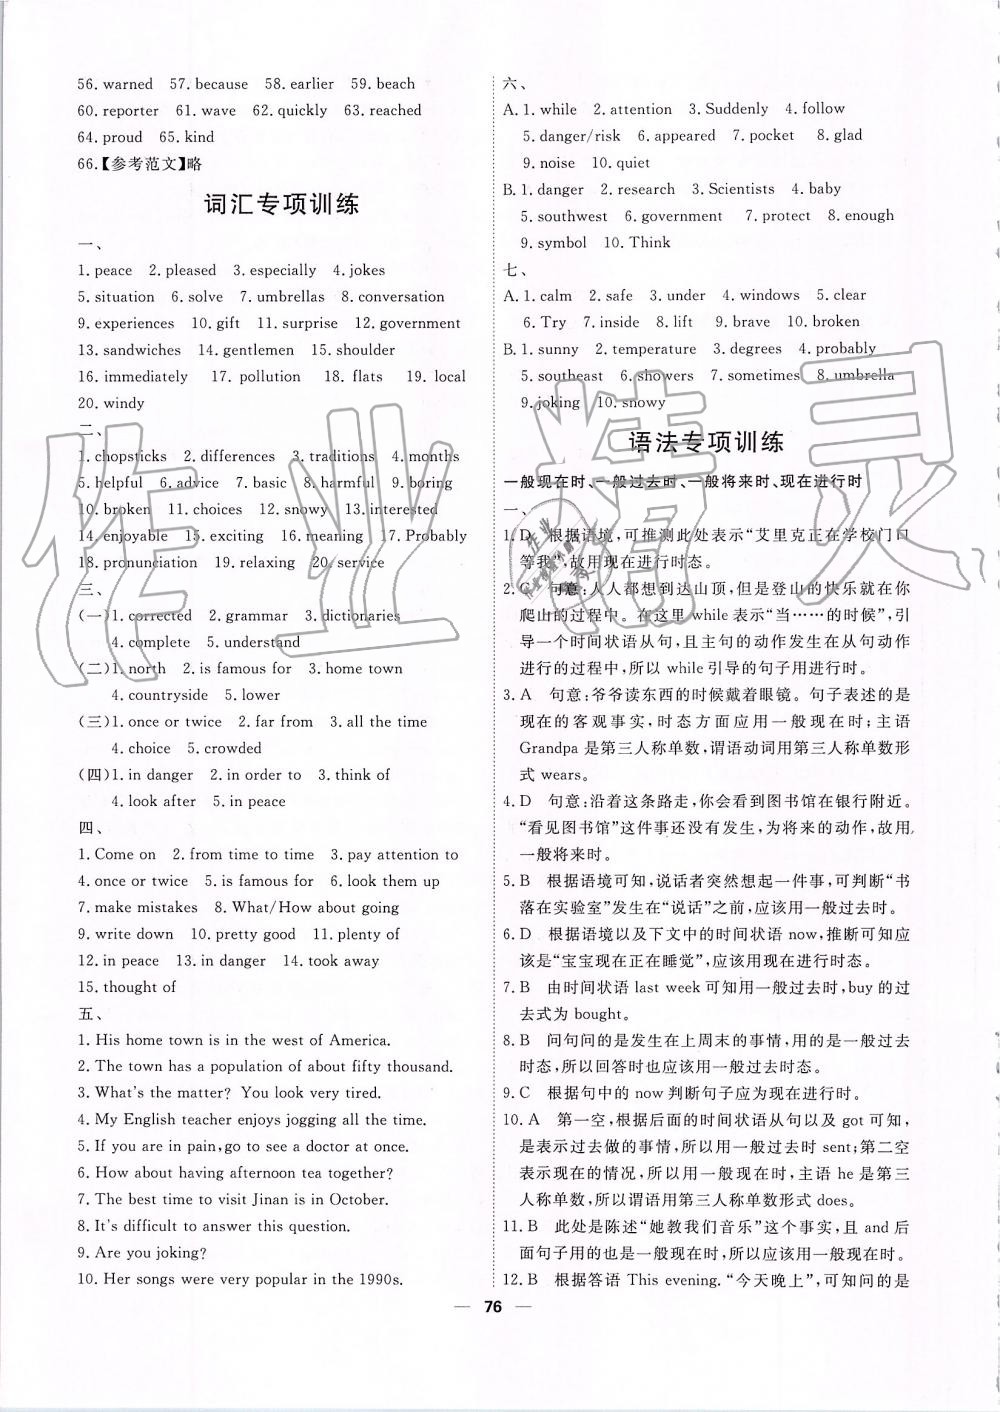 56. warned 57. because 58. earlier 59. beach
60. reporter 61. wave 62. quickly 63. reached
64. proud 65. kind
66.【参考范文】略
词汇专项训练
一、
1. peace 2. pleased 3. especially 4. jokes
5. situation 6. solve 7. umbrellas 8. conversation
9. experiences 10. gift 11. surprise 12. government
13. sandwiches 14. gentlemen 15. shoulder
16. immediately 17. pollution 18. flats 19. local
20. windy
二、
1. chopsticks 2. differences 3. traditions 4. months
5. helpful 6. advice 7. basic 8. harmful 9. boring
10. broken 11. choices 12. snowy 13. interested
14. enjoyable 15. exciting 16. meaning 17. Probably
18. pronunciation 19. relaxing 20. service
三、
(一)1. corrected 2. grammar 3. dictionaries
4. complete 5. understand
(二)1. north 2. is famous for 3. home town
4. countryside 5. lower
(三)1. once or twice 2. far from 3. all the time
4. choice 5. crowded
(四)1. in danger 2. in order to 3. think of
4. look after 5. in peace
四、
1. Come on 2. from time to time 3. pay attention to
4. once or twice 5. is famous for 6. look them up
7. make mistakes 8. What/How about going
9. write down 10. pretty good 11. plenty of
12. in peace 13. in danger 14. took away
15. thought of
五、
1. His home town is in the west of America.
2. The town has a population of about fifty thousand.
3. What's the matter? You look very tired.
4. My English teacher enjoys jogging all the time.
5. If you are in pain, go to see a doctor at once.
6. How about having afternoon tea together?
7. The best time to visit Jinan is in October.
8. It's difficult to answer this question.
9. Are you joking?
10. Her songs were very popular in the 1990s.
六、
A. 1. while 2. attention 3. Suddenly 4. follow
5. danger/risk 6. appeared 7. pocket 8. glad
9. noise 10. quiet
B. 1. danger 2. research 3. Scientists 4. baby
5. southwest 6. government 7. protect 8. enough
9. symbol 10. Think
七、
A. 1. calm 2. safe 3. under 4. windows 5. clear
6. Try 7. inside 8. lift 9. brave 10. broken
B. 1. sunny 2. temperature 3. degrees 4. probably
5. southeast 6. showers 7. sometimes 8. umbrella
9. joking 10. snowy
语法专项训练
一般现在时、一般过去时、一般将来时、现在进行时
一、
1. D 根据语境,可推测此处表示“艾里克正在学校门口
等我”,故用现在进行时态。
2. C 句意:人人都想到达山顶,但是登山的快乐就在你
爬山的过程中。在这里 while 表示“当……的时候”,引
导一个时间状语从句,且主句的动作发生在从句动作
进行的过程中,所以 while 引导的句子用进行时。
3. A 句意:爷爷读东西的时候戴着眼镜。句子表述的是
现在的客观事实,时态方面应用一般现在时;主语
Grandpa 是第三人称单数,谓语动词用第三人称单数形
式 wears。
4. D 句意:沿着这条路走,你会看到图书馆在银行附近。
“看见图书馆”这件事还没有发生,为将来的动作,故用
一般将来时。
5. B 根据语境可知,说话者突然想起一件事,可判断“书
落在实验室”发生在“说话”之前,应该用一般过去时。
6. D 根据语境以及下文中的时间状语 now,推断可知应
该是“宝宝现在正在睡觉”,应该用现在进行时态。
7. B 由时间状语 last week 可知用一般过去时,buy 的过
去式为 bought。
8. B 问句问的是发生在上周末的事情,用的是一般过去
时态,所以回答时也应该用一般过去时态。
9. C 根据句中的 now 判断句子应为现在进行时。
10. A 第一空,根据后面的时间状语从句以及 got 可知,
是表示过去做的事情,所以用一般过去时 sent;第二空
表示现在的情况,所以用一般现在时,主语 he 是第三
人称单数,所以谓语用第三人称单数形式 does。
11. B 此处是陈述“她教我们音乐”这个事实,且 and 后
面句子用的也是一般现在时,所以应该用一般现在时。
12. B 根据答语 This evening.“今天晚上”,可知问的是
76
作业精灵